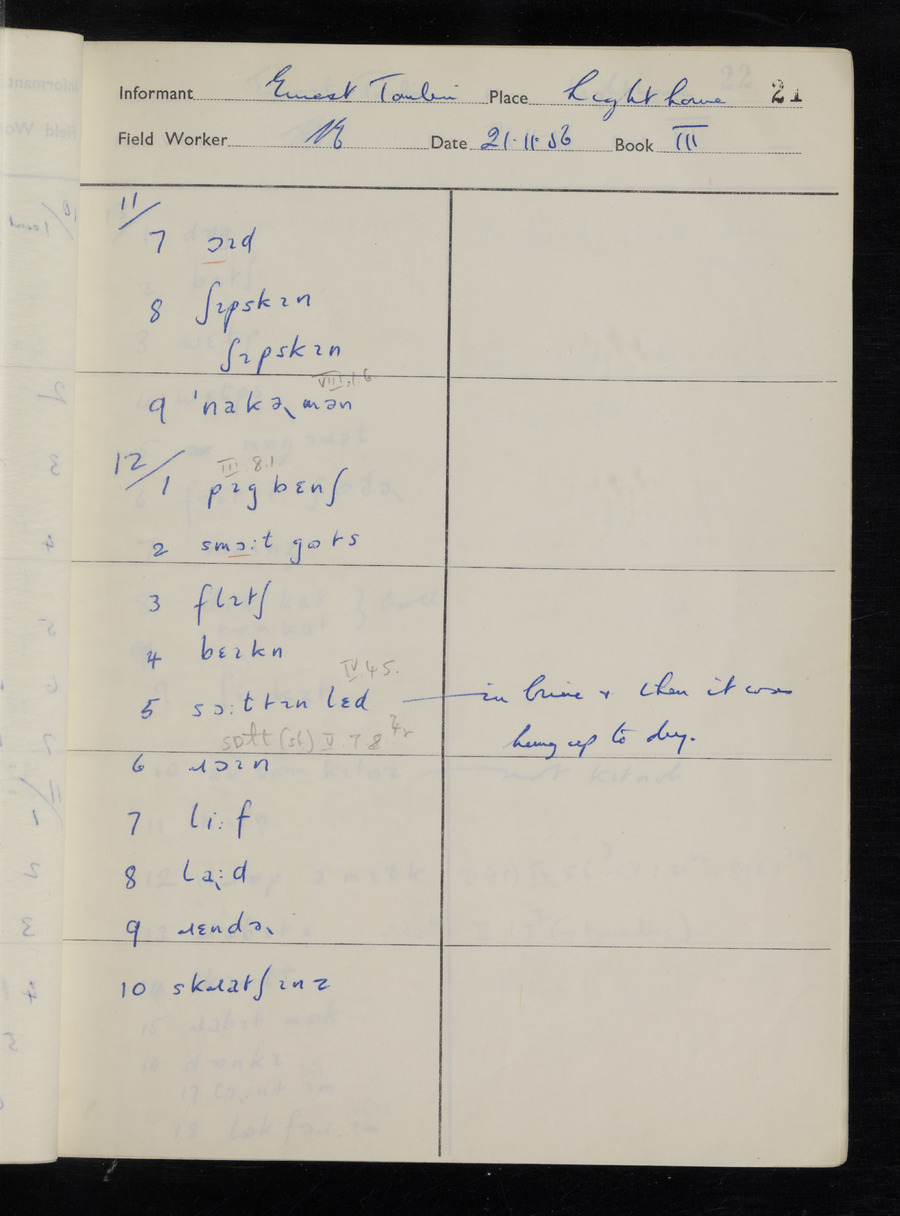 Informant Ernest Tomlin Place Lighthorne 21
Field Worker Date 21·11·56 Book III
11/
7 ɔɪd
8 ʃɪpskɪn
ʃɪpskɪn
VIII.1.6
9 'nakə˞mən
12/ III 8.1
1 pɪgbɛnʃ
2 smɔ:t gʊts
3 flɪtʃ
4 bɛɪkn
IV 4 5.
5 sɔ:ttɪn lɛd — in brine & then it was
hung up to dry.
V 7 8
6 ɹɔɪn
7 li:f
8 la:d
9 ɹɛndə˞
10 skɹatʃɪnz